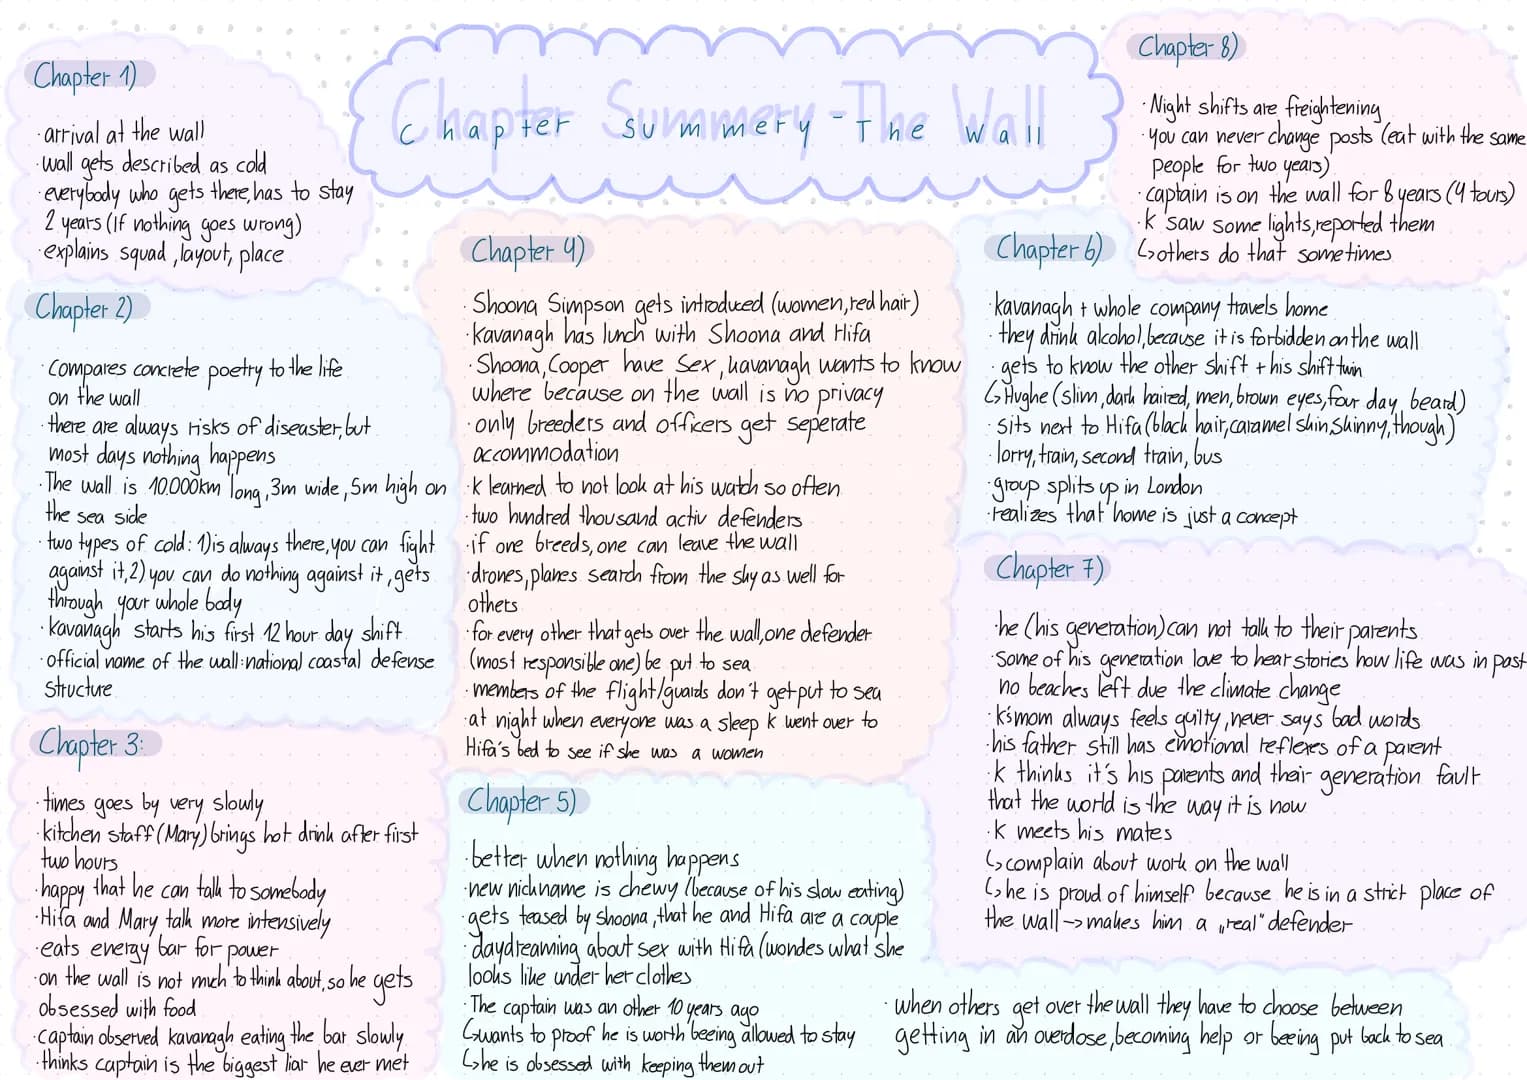 Chapter Summery - The Wall
Chapter 1)
· arrival at the wall
· wall gets described as cold
· everybody who gets there, has to stay
2 years (If nothing goes wrong)
· explains squad, layout, place
Chapter 2)
· compares concrete poetry to the life
on the wall
· there are always risks of diseaster, but
most days nothing happens
· The wall is 10.000km long, 3m wide, 5m high on
the sea side
· two types of cold: 1) is always there, you can fight
against it, 2) you can do nothing against it, gets
through your whole body
· kavanagh starts his first 12 hour day shift
· official name of the wall: national coastal defense
structure
Chapter 3:
· times goes by very slowly
· kitchen staff (Mary) brings hot drink after first
two hours
· happy that he can talk to somebody
· Hifa and Mary talk more intensively
· eats energy bar for power
· on the wall is not much to think about, so he gets
obsessed with food
· captain observed kavanagh eating the bar slowly
· thinks captain is the biggest liar he ever met
Chapter 4)
· Shoona Simpson gets introduced (women, red hair)
· Kavanagh has lunch with Shoona and Hifa
· Shoona, Cooper have sex, kavanagh wants to know
where because on the wall is no privacy
· only breeders and officers get seperate
accommodation
· K learned to not look at his watch so often
· two hundred thousand activ defenders
· if one breeds, one can leave the wall
· drones, planes search from the sky as well for
others
· for every other that gets over the wall, one defender
(most responsible one) be put to sea
· members of the flight/guards don't get put to sea
· at night when everyone was a sleep K went over to
Hifa's bed to see if she was a women
Chapter 5)
· better when nothing happens
· new nickname is chewy (because of his slow eating)
· gets teased by shoona, that he and Hifa are a couple
· daydreaming about sex with Hifa (wondes what she
looks like under her clothes
· The captain was an other 10 years ago
↳ wants to proof he is worth beeing allowed to stay
↳ he is obsessed with keeping them out
· when others get over the wall they have to choose between
getting in an overdose, becoming help or beeing put back to sea
Chapter 6)
· kavanagh + whole company travels home
· they drink alcohol, because it is forbidden on the wall
· gets to know the other shift + his shift twin
↳ Hughe (slim, dark haired, men, brown eyes, four day beard)
· sits next to Hifa (black hair, caramel skin, skinny, though)
· lorry, train, second train, bus
· group splits up in London
· realizes that home is just a concept
Chapter 7)
· he (his generation) can not talk to their parents
· Some of his generation love to hear stories how life was in past
· no beaches left due the climate change
· K's mom always feels guilty, never says bad words
· his father still has emotional reflexes of a parent
· K thinks it's his parents and their generation fault
that the world is the way it is now
· K meets his mates
↳ complain about work on the wall
↳ he is proud of himself because he is in a strict place of
the wall → makes him a „real" defender
Chapter 8)
· Night shifts are freightening
· you can never change posts (eat with the same
people for two years)
· captain is on the wall for 8 years (4 tours)
· K saw some lights, reported them
↳ others do that sometimes